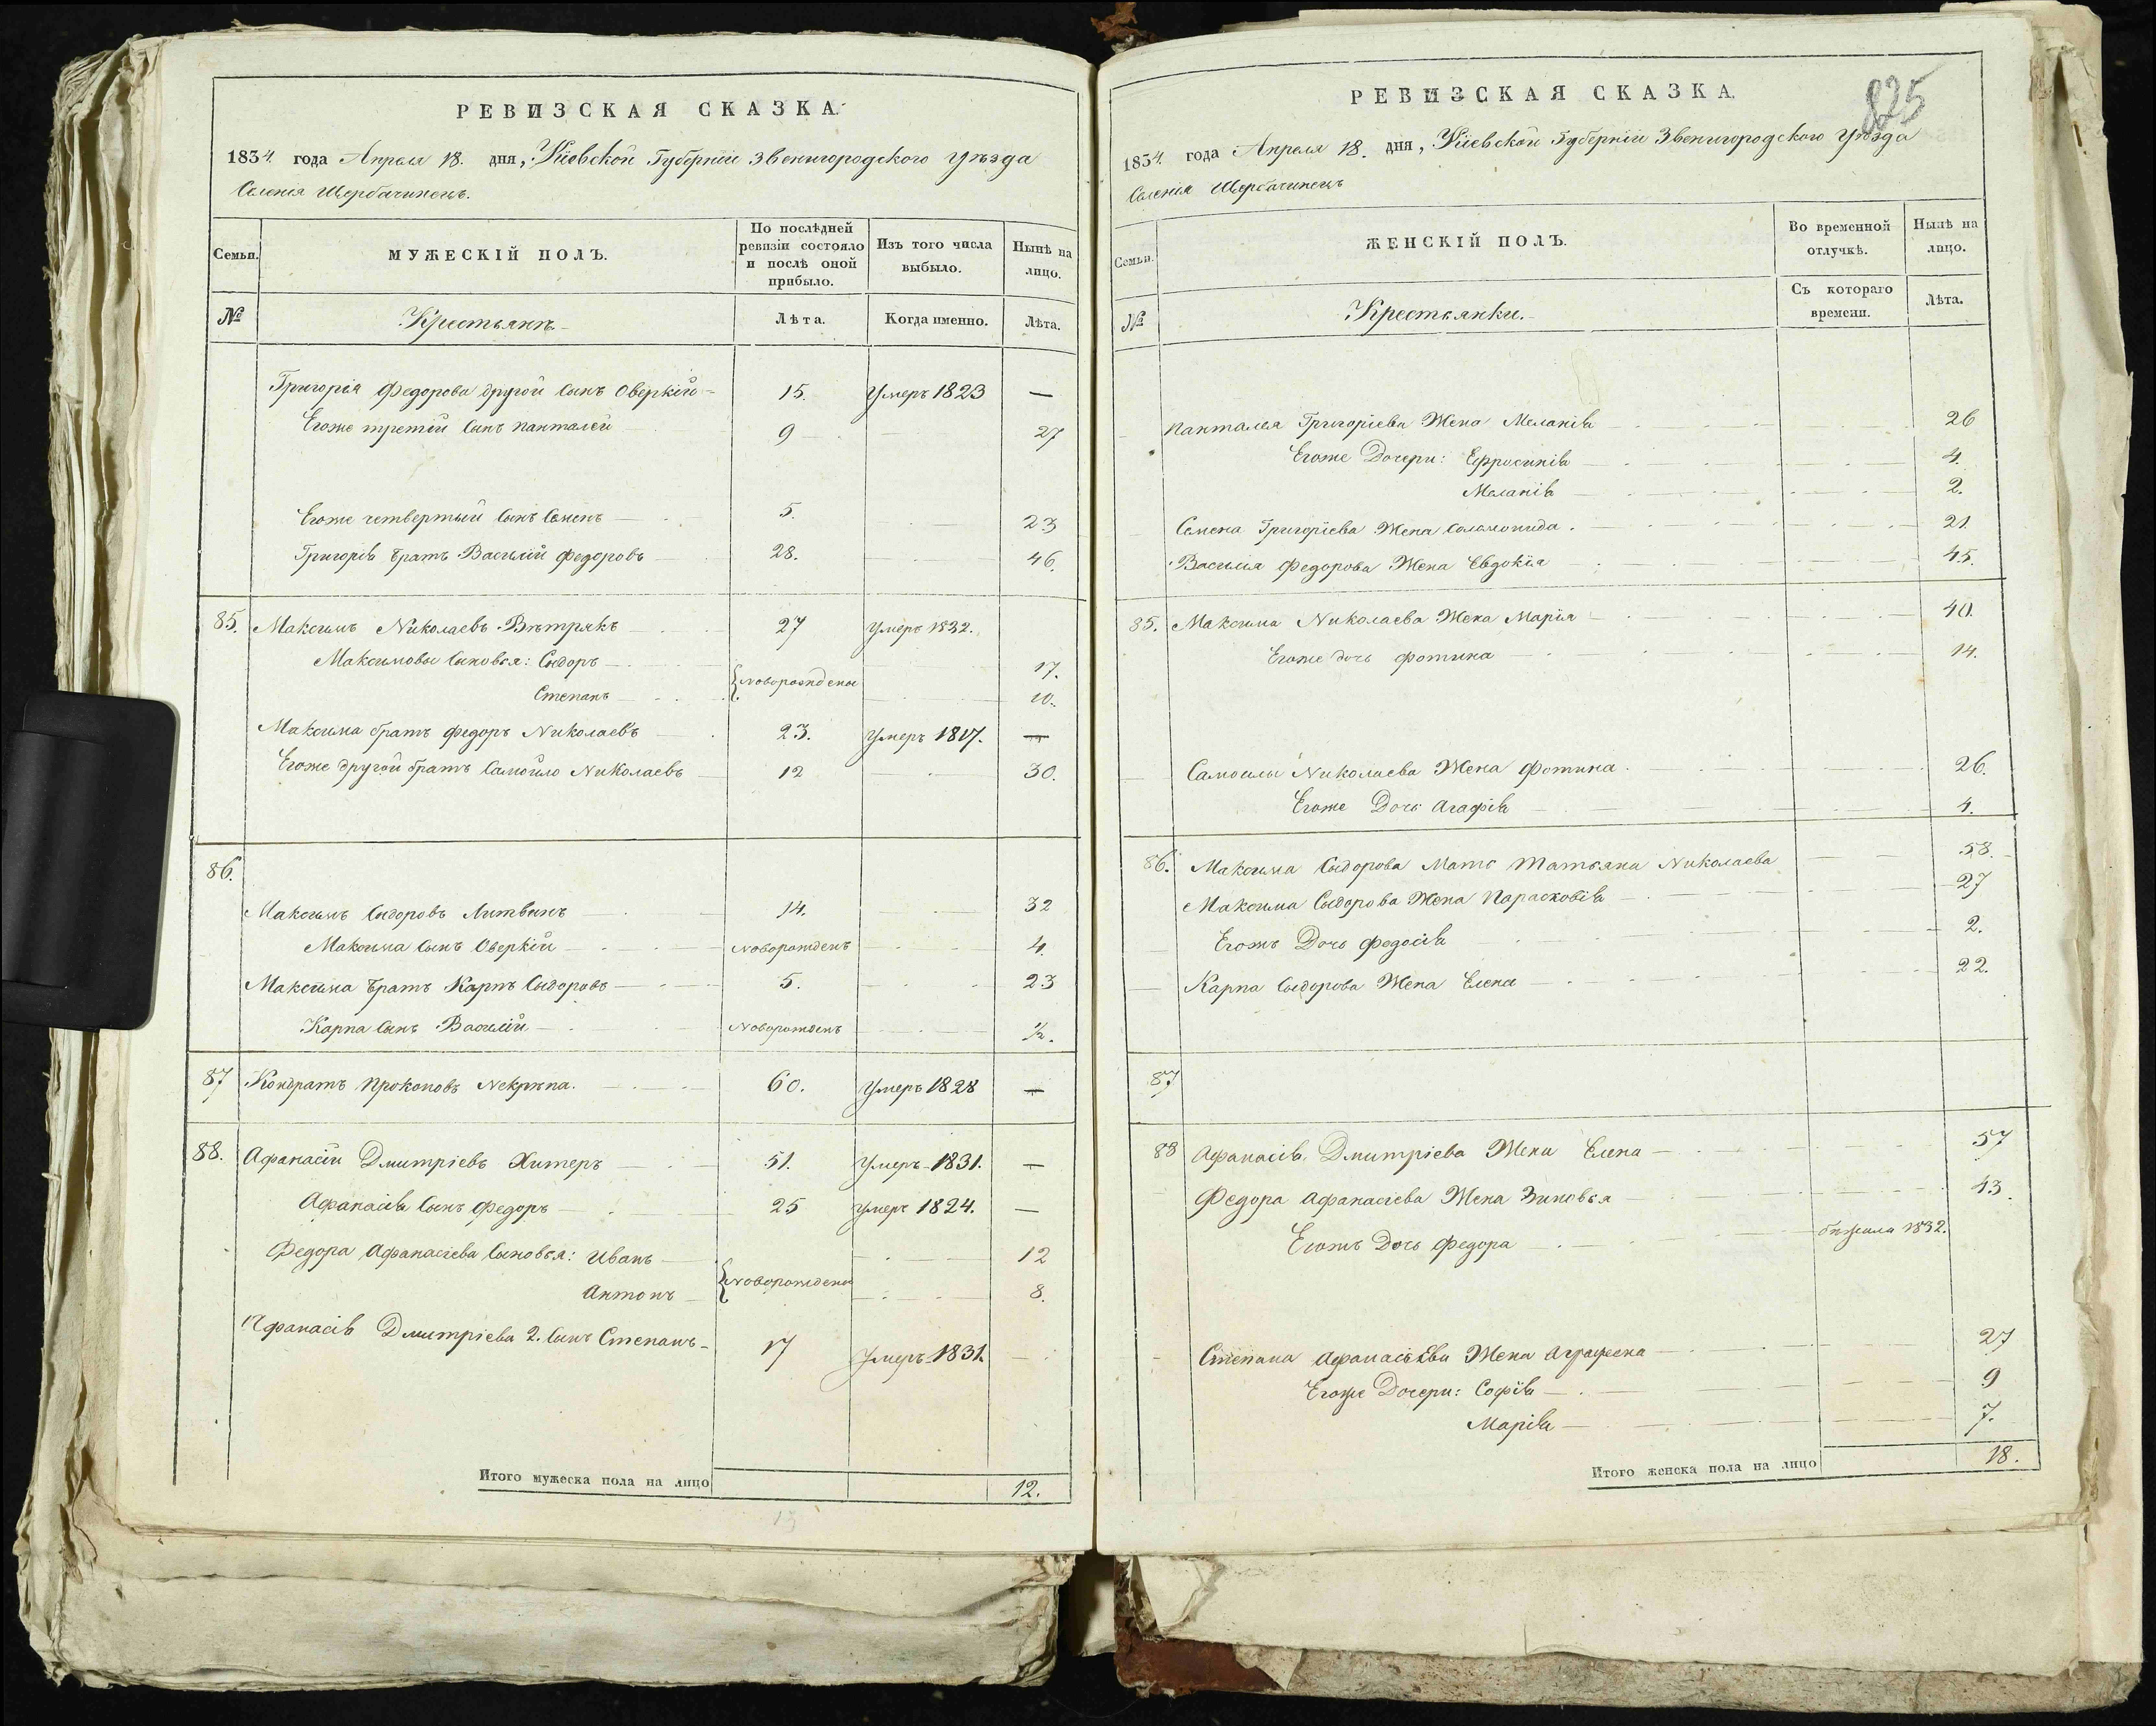 РЕВИЗСКАЯ СКАЗКА.
1834. года Апреля 18. дня, Кіевской Губерніи Звенигородского Уѣзда
Селенія Щербачинецъ.
Семьи. МУЖЕСКІЙ ПОЛЪ. По послѣдней ревизіи состояло и послѣ оной прибыло. Изъ того числа выбыло. Нынѣ на лицо.
№ Крестьянъ. Лѣта. Когда именно. Лѣта.
Григорія Федорова другой сынъ Оверкій 15. Умеръ 1823 —
Егоже третій сынъ Панталей 9 27
Егоже четвертый сынъ Семенъ 5. 23
Григорія братъ Василій Федоровъ 28. 46.
85. Максимъ Николаевъ Вѣтрякъ 27 Умеръ 1832.
Максимовы сыновья: Сидоръ 17.
новорождены
Степанъ 10.
Максима братъ Федоръ Николаевъ 23. Умеръ 1817. —
Егоже другой братъ Самойло Николаевъ 12 30.
86.
Максимъ Сидоровъ Литвинъ 14. 32
Максима сынъ Оверкій новорожденъ 4.
Максима братъ Карпъ Сидоровъ 5. 23
Карпа сынъ Василій новорожденъ ½.
87 Кондратъ Прокоповъ Некрѣпа. 60. Умеръ 1828 —
88. Афанасій Дмитріевъ Хитеръ 51. Умеръ 1831. —
Афанасія сынъ Федоръ 25 Умеръ 1824. —
Федора Афанасіева сыновья: Иванъ 12
новорождены
Антонъ 8.
Афанасія Дмитріева 2. сынъ Степанъ 17 Умеръ 1831.
Итого мужеска пола на лицо 12.
13
825
РЕВИЗСКАЯ СКАЗКА.
1834. года Апреля 18. дня, Кіевской Губерніи Звенигородского Уѣзда
Селенія Щербачинецъ
Семьи. ЖЕНСКІЙ ПОЛЪ. Во временной отлучкѣ. Нынѣ на лицо.
№ Крестьянки. Съ котораго времени. Лѣта.
Панталея Григоріева Жена Меланія 26
Егоже Дочери: Ефросинія 4.
Меланія 2.
Семена Григоріева Жена Соломонида. 21
Василія Федорова Жена Евдокія 45.
85. Максима Николаева Жена Марія 40.
Егоже дочь Фотина 14.
Самойлы Николаева Жена Фотина. 26.
Егоже Дочь Агафія 4.
86. Максима Сыдорова Мать Татьяна Николаева 58.
Максима Сыдорова Жена Парасковія 27
Егожъ Дочь Федосія 2.
Карпа Сыдорова Жена Елена 22.
87
88 Афанасія Дмитріева Жена Елена 57
Федора Афанасіева Жена Зиновья 43.
Егожъ Дочь Федора бѣжала 1832.
Степана Афанасіева Жена Аграфена 27
Егоже Дочери: Софія 9
Марія 7.
Итого женска пола на лицо 18.